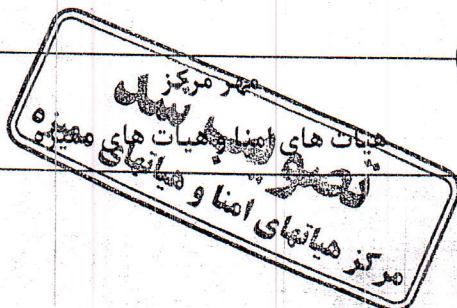 مهر مرکز
هیات های امنا و هیات های ممیزه
تصویب شد
مرکز هیاتهای امنا و هیاتهای